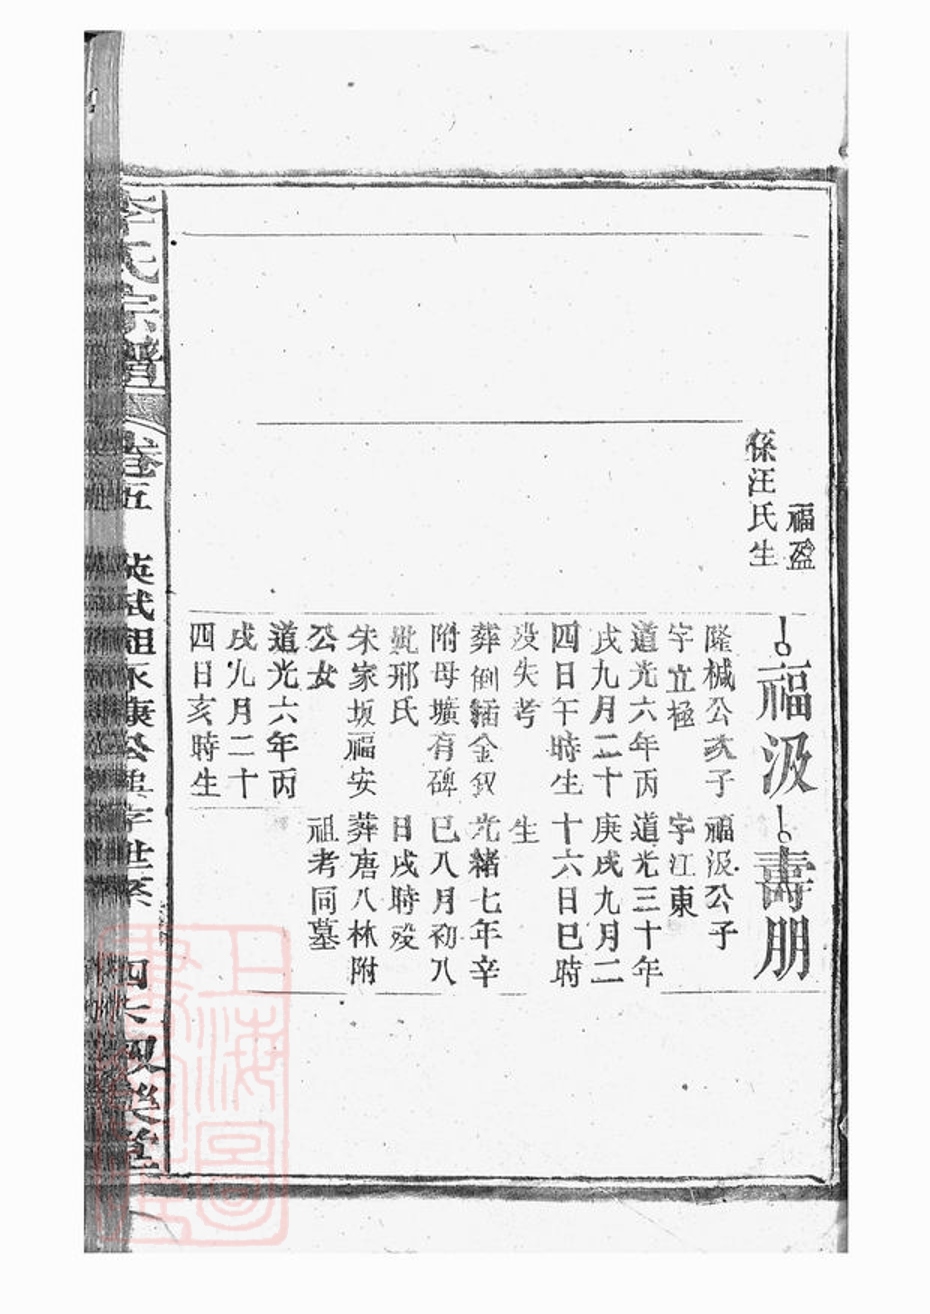 福盈
係汪氏生
福汲
隆棫公次子
字立極
道光六年丙
戌九月二十
四日午時生
殁失考
葬倒插金釵
附母壙有碑
妣邢氏
朱家坂福安
公女
道光六年丙
戌九月二十
四日亥時生
壽朋
福汲公子
字江東
道光三十年
庚戌九月二
十六日巳時
生
光緒七年辛
巳八月初八
日戌時殁
葬唐八林附
祖考同墓
李氏宗譜
卷五
英武祖永康公吳字世系
四
敘樂堂
上海圖